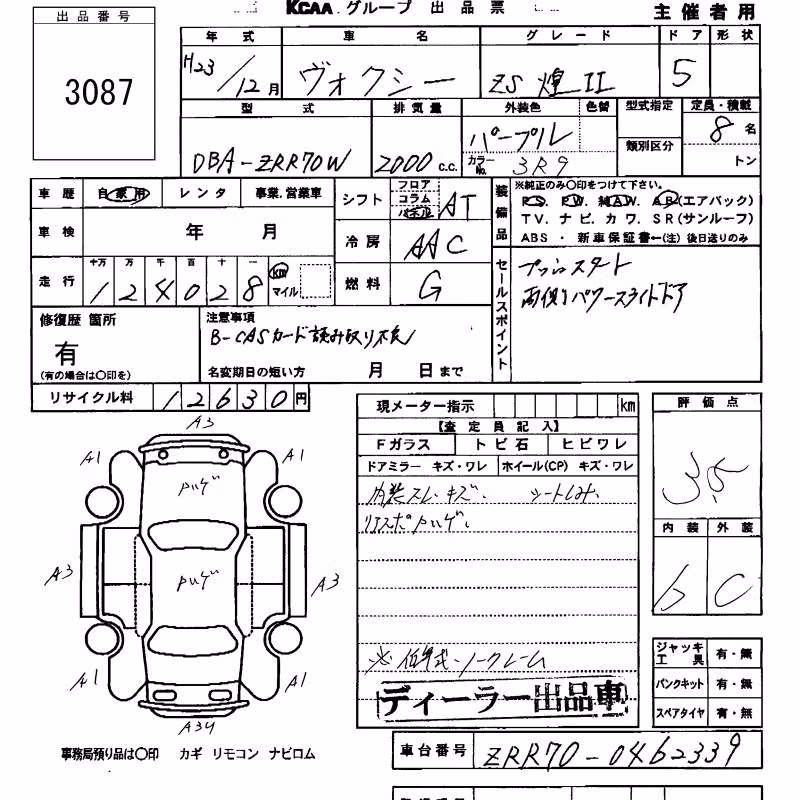 KCAA グループ 出品票
主催者用
出品番号
3087
年式 車名 グレード ドア 形状
H23/12月 ヴォクシー ZS 煌II 5
型式 排気量 外装色 色替 型式指定 定員・積載
DBA-ZRR70W 2000c.c. パープル カラーNo. 3R9 類別区分 8名
トン
車歴 自家用 レンタ 事業.営業車
車検 年 月
走行 十万 万 千 百 十 一
124028 km マイル
シフト フロア コラム パネル AT
冷房 AAC
燃料 G
装備品
※純正のみ〇印をつけて下さい。
P.S. P.W. AW. AB(エアバック)
T V. ナ ビ. カ ワ. S R(サンルーフ)
ABS ・ 新車保証書←(注) 後日送りのみ
セールスポイント
プッシュスタート
両側パワースライドドア
修復歴 箇所
有
(有の場合は〇印を)
注意事項
B-CASカード読み取り不良
名変期日の短い方 月 日まで
リサイクル料 12630円
現メーター指示 km
【査定員記入】
Fガラス トビ石 ヒビワレ
ドアミラー キズ・ワレ ホイール(CP) キズ・ワレ
内装スレ・キズ. シートしみ.
リアスポハゲ.
※低年式・ノークレーム
ディーラー出品車
評価点
3.5
内装 外装
b C
ジャッキ工具 有・無
パンクキット 有・無
スペアタイヤ 有・無
A3
A1 A1
ハゲ
A3 ハゲ A3
A1 A1
A34
事務局預り品は〇印 カギ リモコン ナビロム
車台番号 ZRR70-0462339